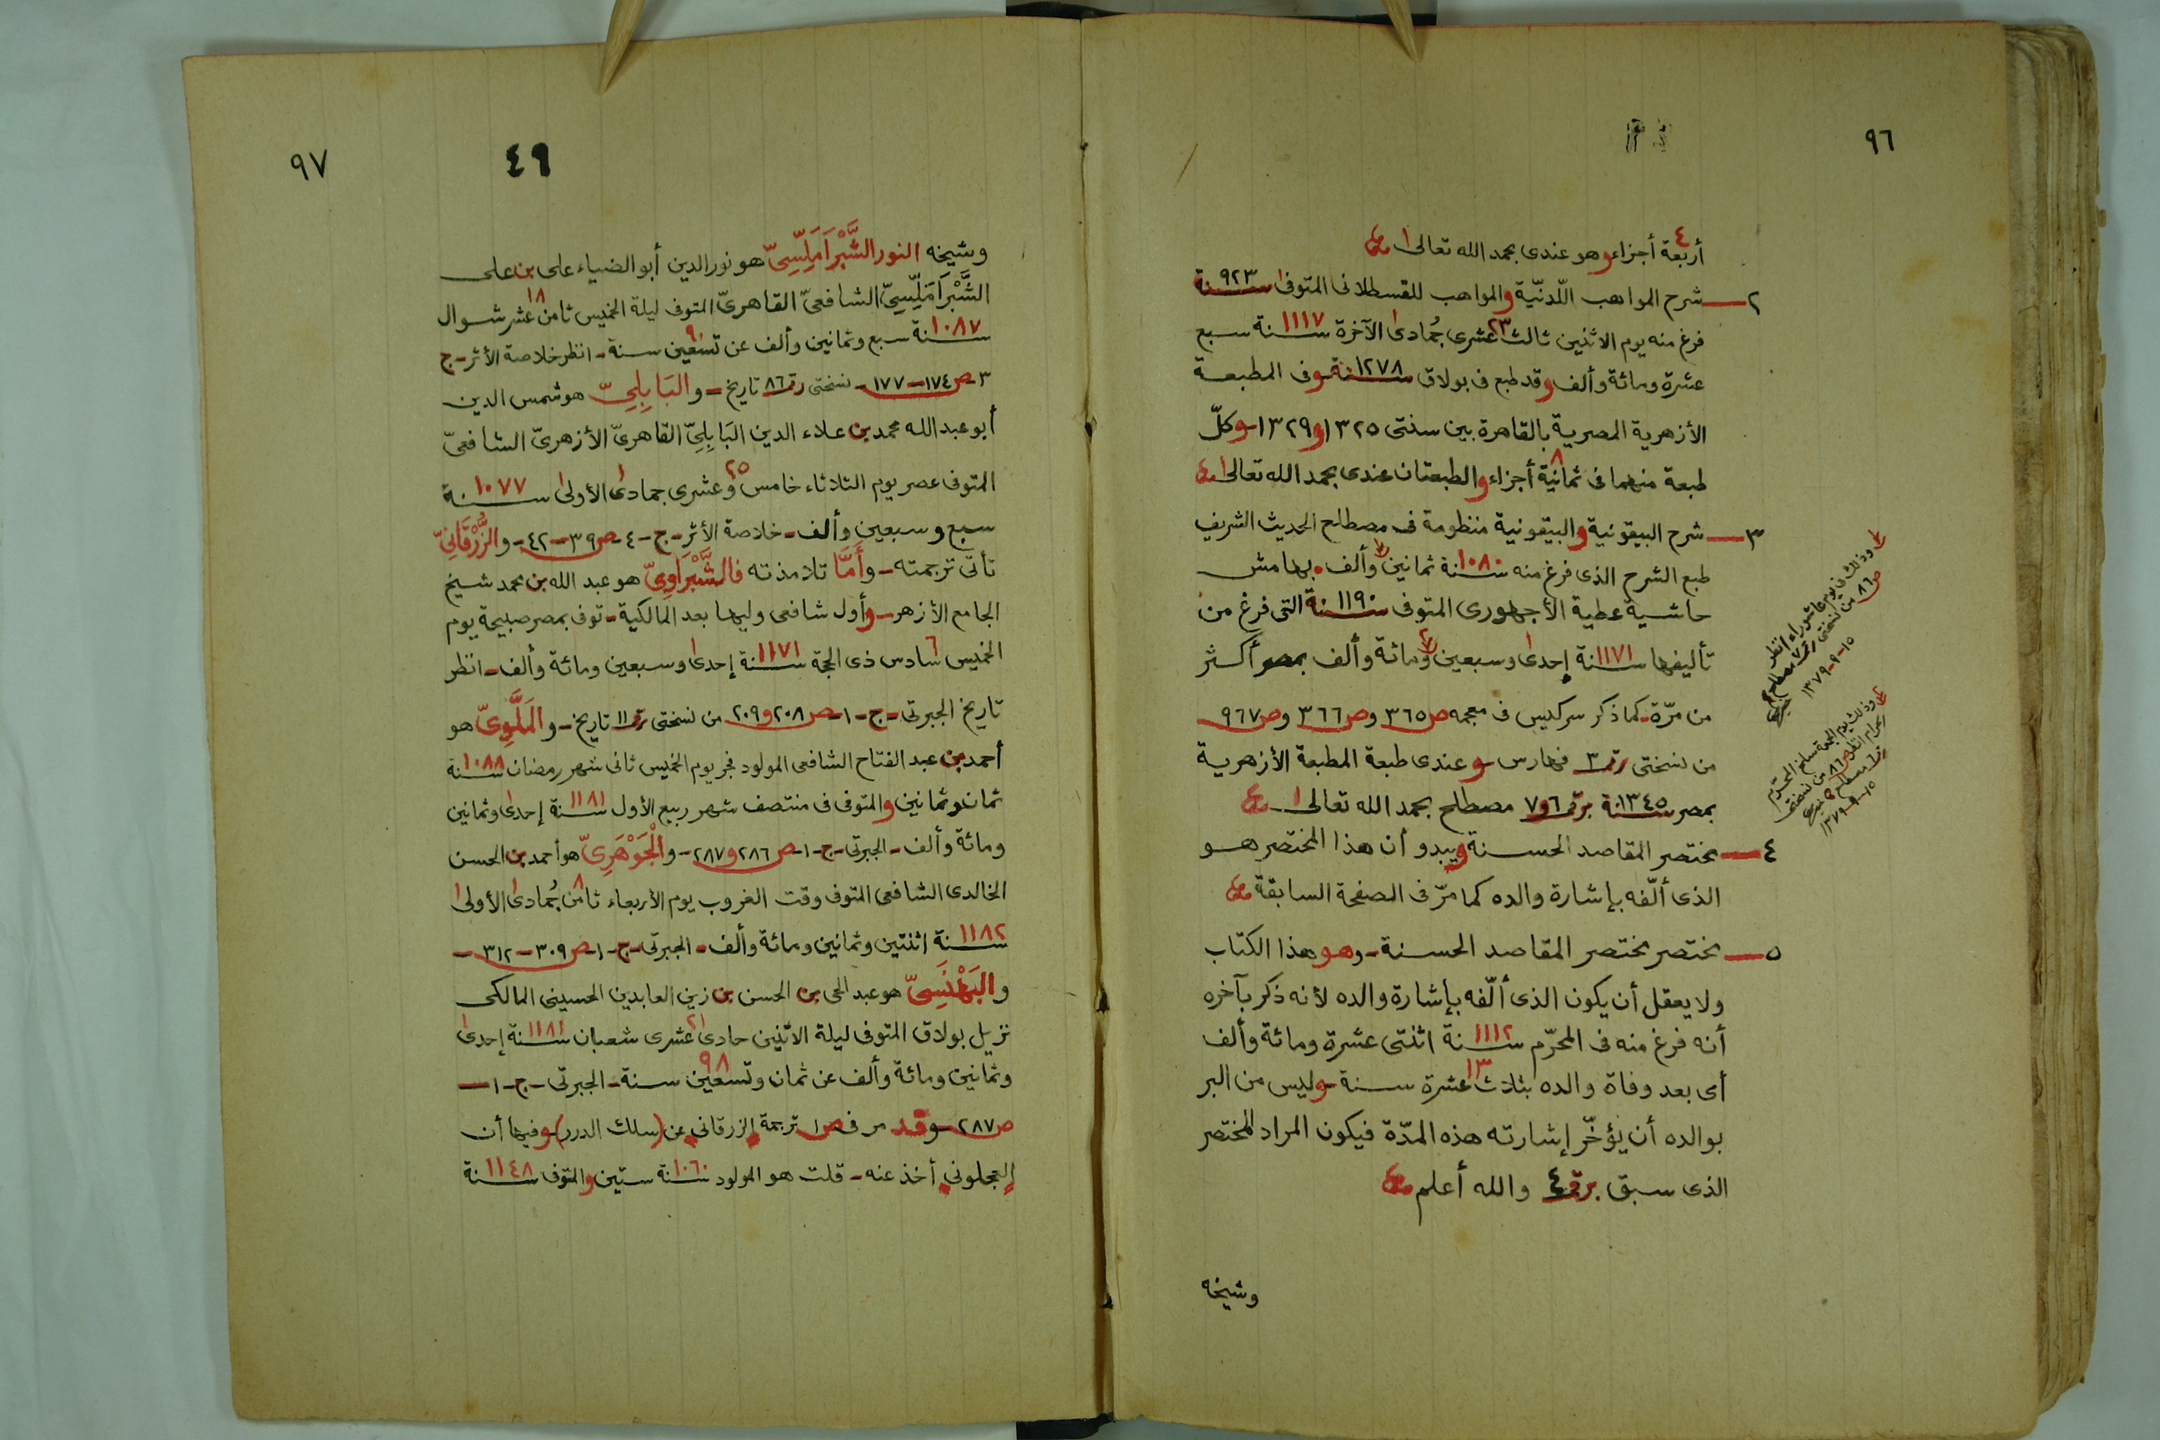 ٩٦
أربعة أجزاء وهو عندى بحمد الله تعالى ا ه
٢ــ شرح المواهب اللّدنّية والمواهب للقسطلانى المتوفى سنة ٩٢٣
فرغ منه يوم الاثنين ثالث عشرى جُمادى الآخرة سنة ١١١٧ سبع
عشرة ومائة وألف وقد طبع فى بولاق سنة ١٢٧٨ وفى المطبعة
الأزهرية المصرية بالقاهرة بين سنتى ١٣٢٥ و١٣٢٩ـ وكلّ
طبعة منهما فى ثمانية أجزاء والطبعتان عندى بحمد الله تعالى ا ه
٣ــ شرح البيقونية والبيقونية منظومة فى مصطلح الحديث الشريف
طبع الشرح الذى فرغ منه سنة ١٠٨٠ ثمانين وألف. بهامش
حاشية عطية الأجهورى المتوفى سنة ١١٩٠ التى فرغ من
تأليفها سنة ١١٧١ إحدى وسبعين ومائة وألف بمصر أكثر
من مرّة ـ كما ذكر سركيس فى معجمه ص ٣٦٥ وص ٣٦٦ وص ٩٦٧
من نسختى رقم ٣ فهارس ـ وعندى طبعة المطبعة الأزهرية
بمصر سنة ١٣٤٥ برقم ٦ و٧ مصطلح بحمد الله تعالى ا ه
٤ــ مختصر المقاصد الحسنة ويبدو أن هذا المختصر هو
الذى ألّفه بإشارة والده كما مرّ فى الصفحة السابقة ا ه
٥ــ مختصر مختصر المقاصد الحسنة ـ وهو هذا الكتاب
ولا يعقل أن يكون الذى ألّفه بإشارة والده لأنه ذكر بآخره
أنه فرغ منه فى المحرّم سنة ١١١٢ اثنتى عشرة ومائة وألف
أى بعد وفاة والده بثلاث ١٣ عشرة سنة ـ وليس من البر
بوالده أن يؤخّر إشارته هذه المدّة فيكون المراد المختصر
الذى سبق برقم ٤ والله أعلم ا ه
وذلك فى يوم عاشوراء انظر
ص ٨٦ من نسختى رقم ٧ مصطلح
١٥-٩-١٣٧٩
وذلك يوم الجمعة سلخ المحرّم
الحرام انظر ص ٨٦ من نسختى
رقم ٦ مصطلح
١٥-٩-١٣٧٩
وشيخه
٩٧
٤٩
وشيخه النور الشَّبْرَامَلِّسِىّ هو نور الدين أبو الضياء على بن على
الشَّبْرَامَلِّسِىّ الشافعىّ القاهرىّ المتوفى ليلة الخميس ثامن ١٨ عشر شوال
سنة ١٠٨٧ سبع وثمانين وألف عن تسعين ٩٠ سنة ـ انظر خلاصة الأثر ـ ج
٣ ص ١٧٤ـ١٧٧ـ نسختى رقم ٨٦ تاريخ ـ والبَابِلِىّ هو شمس الدين
أبو عبد الله محمد بن علاء الدين البَابِلِىّ القاهرىّ الأزهرىّ الشافعىّ
المتوفى عصر يوم الثلاثاء خامس ٢٥ وعشرى جمادى الأولى سنة ١٠٧٧
سبع وسبعين وألف ـ خلاصة الأثر ـ ج ـ ٤ ـ ص ٣٩ـ٤٢ـ والزُّرْقَانِىّ
تأتى ترجمته ـ وأَمَّا تلامذته فالشَّبْرَاوِىّ هو عبد الله بن محمد شيخ
الجامع الأزهر ـ وأول شافعى وليها بعد المالكية ـ توفى بمصر صبيحة يوم
الخميس سادس ٦ ذى الحجة سنة ١١٧١ إحدى وسبعين ومائة وألف ـ انظر
تاريخ الجبرتى ـ ج ـ ١ ـ ص ٢٠٨ و٢٠٩ من نسختى رقم ١١ تاريخ ـ والمَلَّوِىّ هو
أحمد بن عبد الفتاح الشافعى المولود فجر يوم الخميس ثانى شهر رمضان سنة ١٠٨٨
ثمان وثمانين والمتوفى فى منتصف شهر ربيع الأول سنة ١١٨١ إحدى وثمانين
ومائة وألف ـ الجبرتى ـ ج ـ ١ ـ ص ٢٨٦ و٢٨٧ ـ والْجَوْهَرِىّ هو أحمد بن الحسن
الخالدى الشافعى المتوفى وقت الغروب يوم الأربعاء ثامن ٨ جُمادى الأولى
سنة ١١٨٢ اثنتين وثمانين ومائة وألف ـ الجبرتى ـ ج ـ ١ ـ ص ٣٠٩ـ٣١٢ ـ
والبَهْنَسِىّ هو عبد الحى بن الحسن بن زين العابدين الحسينى المالكى
نزيل بولاق المتوفى ليلة الاثنين حادى ٢١ عشرى شعبان سنة ١١٨١ إحدى
وثمانين ومائة وألف عن ثمان وتسعين ٩٨ سنة ـ الجبرتى ـ ج ـ ١ ـ
ص ٢٨٧ ـ وقد مر فى ص ١ ترجمة الزرقانى عن (سلك الدرر) وفيها أن
العجلونى أخذ عنه ـ قلت هو المولود سنة ١٠٦٠ ستين والمتوفى سنة ١١٤٨